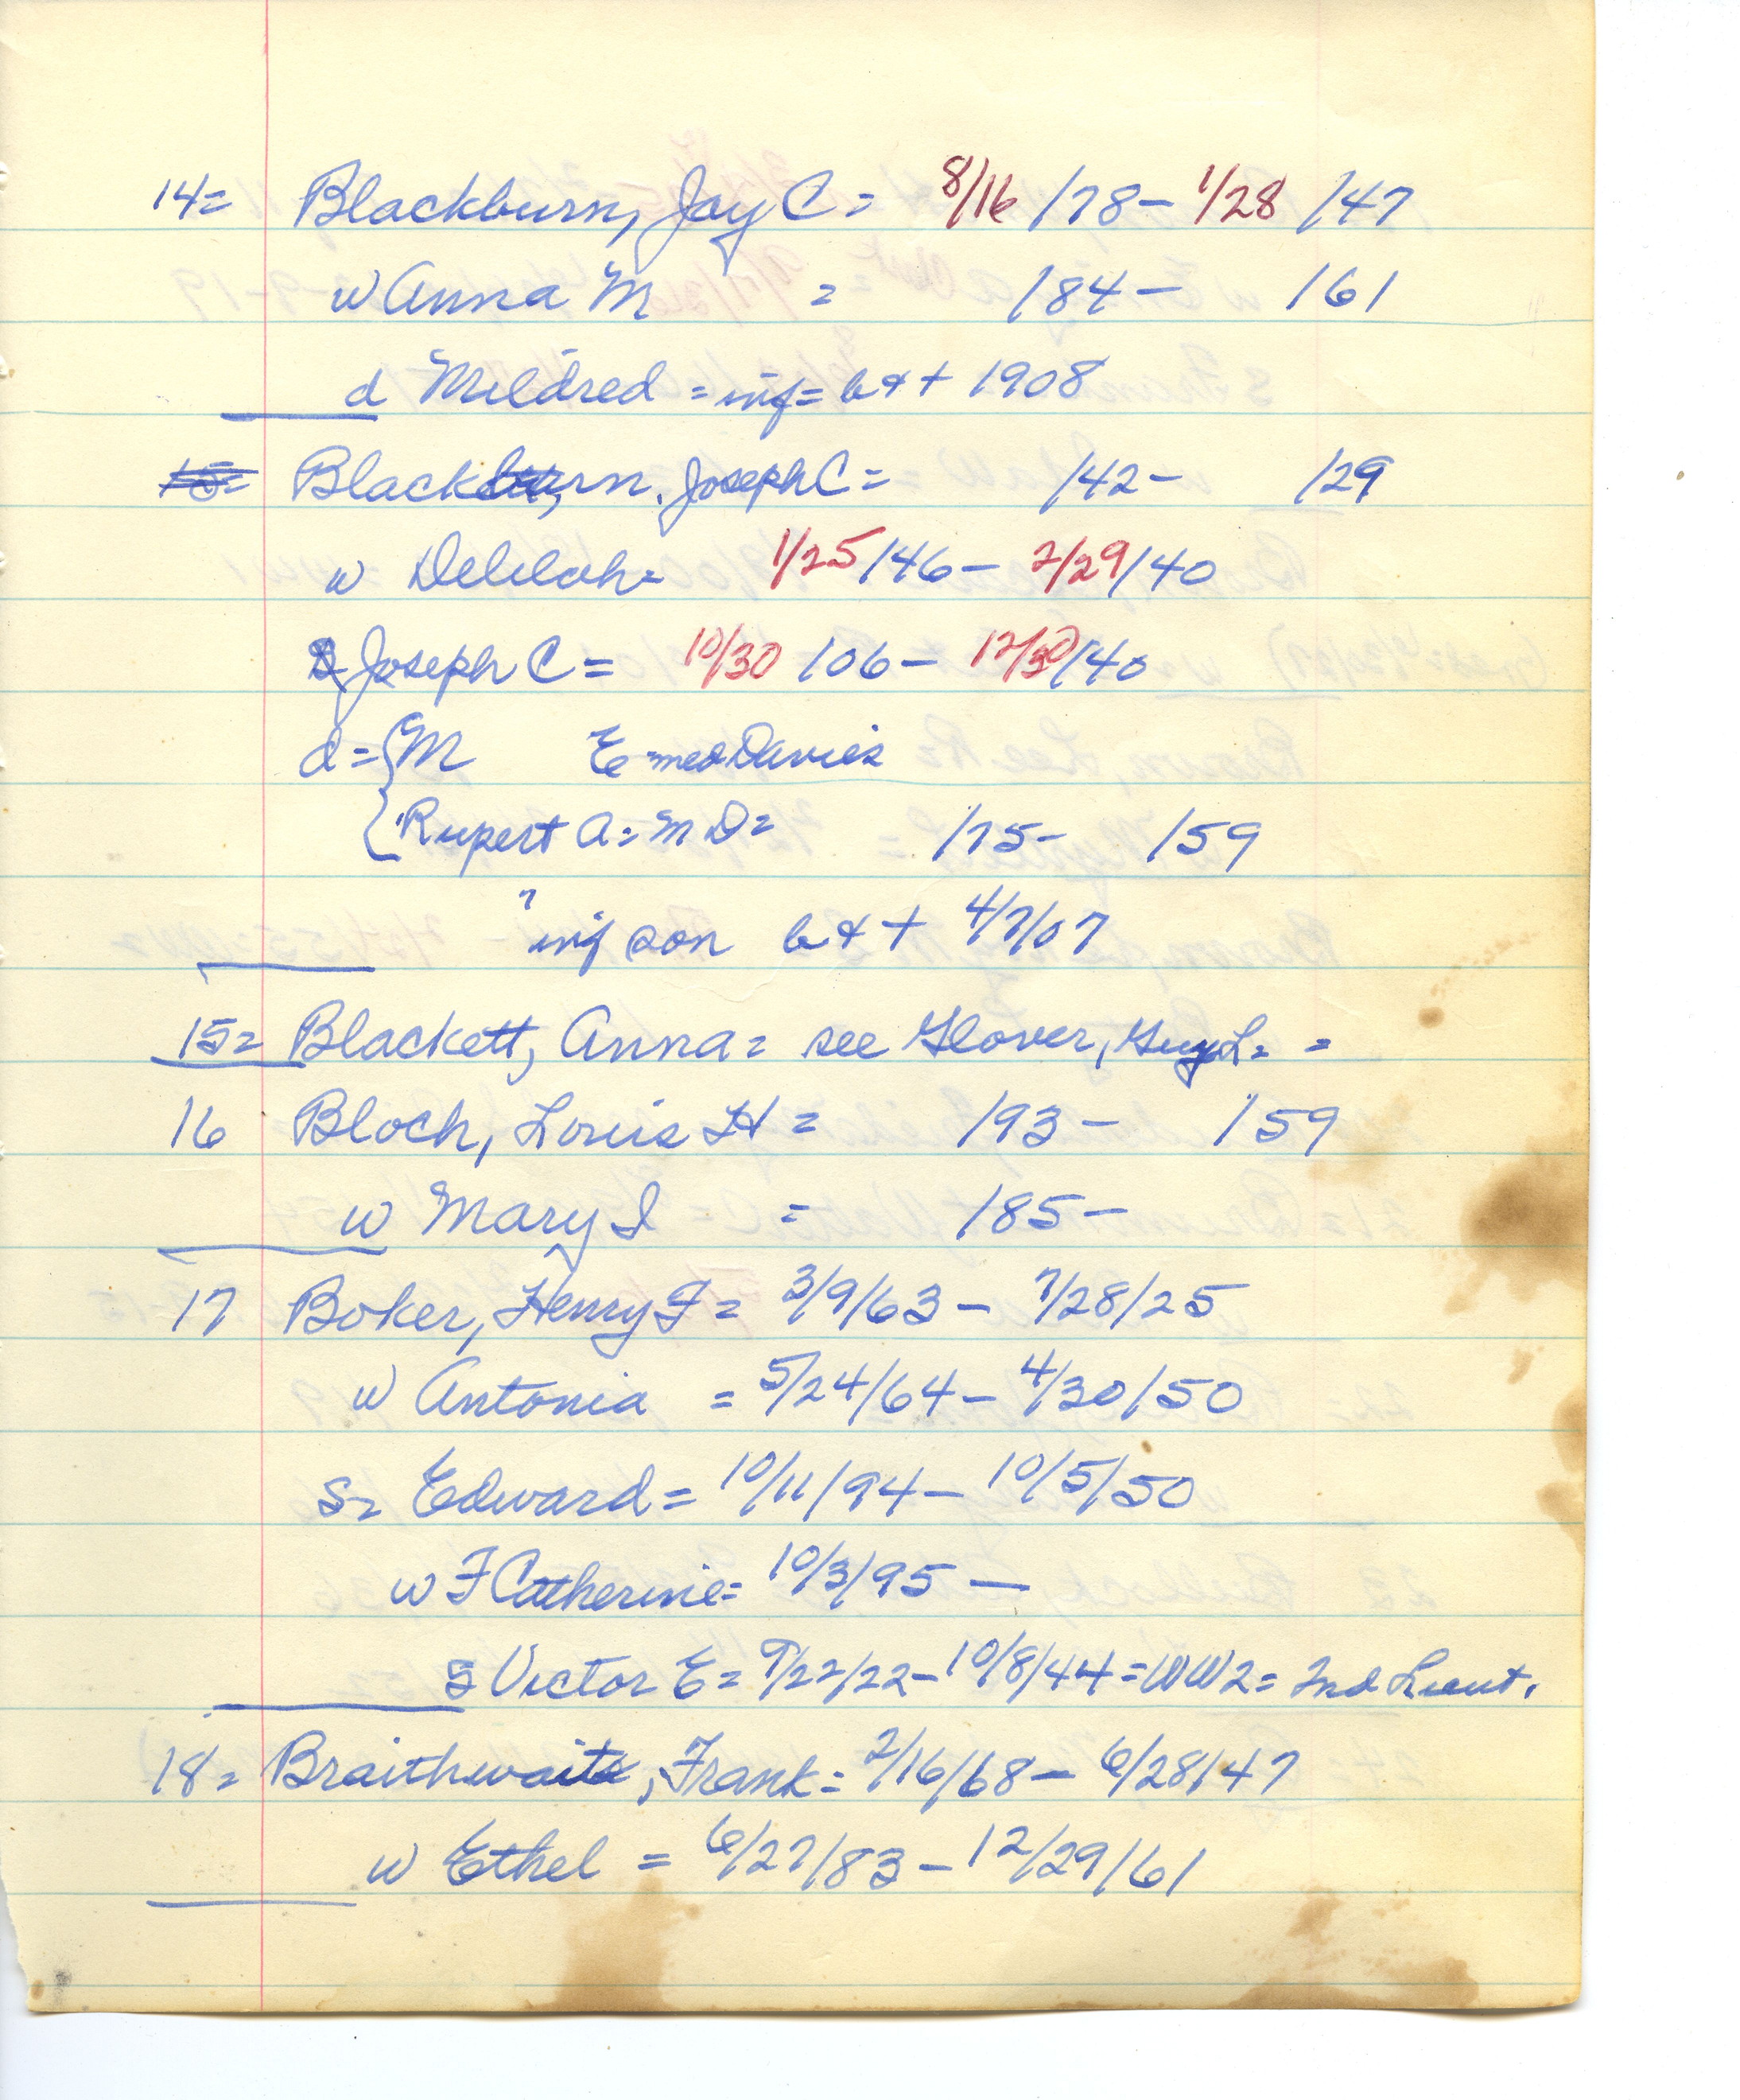 14= Blackburn, Jay C = 8/16 /78 - 1/28 /47
w Anna M = /84 - /61
d Mildred = inf = b & + 1908
15= Blackburn, Joseph C = /42 - /29
w Delilah = 1/25 /46 - 2/29 /40
Joseph C = 10/30 /06 - 12/30 /40
d = { M E = med Davies
{ Rupert A = M D = /75 - /59
" inf son b & + 4/7/07
15= Blackett, Anna = see Glover, Guy L = =
16 Bloch, Louis H = /93 - /59
w Mary I = /85 -
17 Boker, Henry F = 3/9/63 - 7/28/25
w Antonia = 5/24/64 - 4/30/50
s= Edward = 10/11/94 - 10/5/50
w F Catherine = 10/3/95 -
s Victor E = 9/22/22 - 10/8/44 = WW2 = 2nd Lieut.
18= Braithwaite, Frank = 2/16/68 - 6/28/47
w Ethel = 6/27/83 - 12/29/61